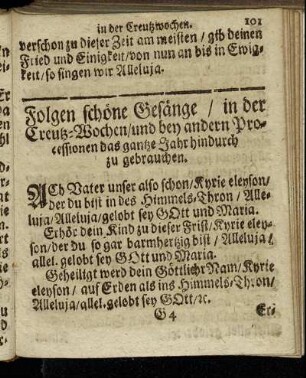 in der Creutzwochen. 101
verschon zu dieser Zeit am meisten / gib deinen
Fried und Einigkeit/von nun an bis in Ewig-
keit/so singen wir Alleluja.
Folgen schöne Gesänge / in der
Creutz-Wochen/und bey andern Pro-
cessionen das gantze Jahr hindurch
zu gebrauchen.
ACh Vater unser also schon/Kyrie eleyson/
der du bist in des Himmels-Thron / Alle-
luja/Alleluja/gelobt sey GOtt und Maria.
Erhör dein Kind zu dieser Frist/Kyrie eley-
son/der du so gar barmhertzig bist / Alleluja/
allel. gelobt sey GOtt und Maria.
Geheiligt werd dein Göttlich Nam/Kyrie
eleyson / auf Erden als ins Himmels-Thron/
Alleluja/allel. gelobt sey GOtt/ꝛc.
G 4 Er-